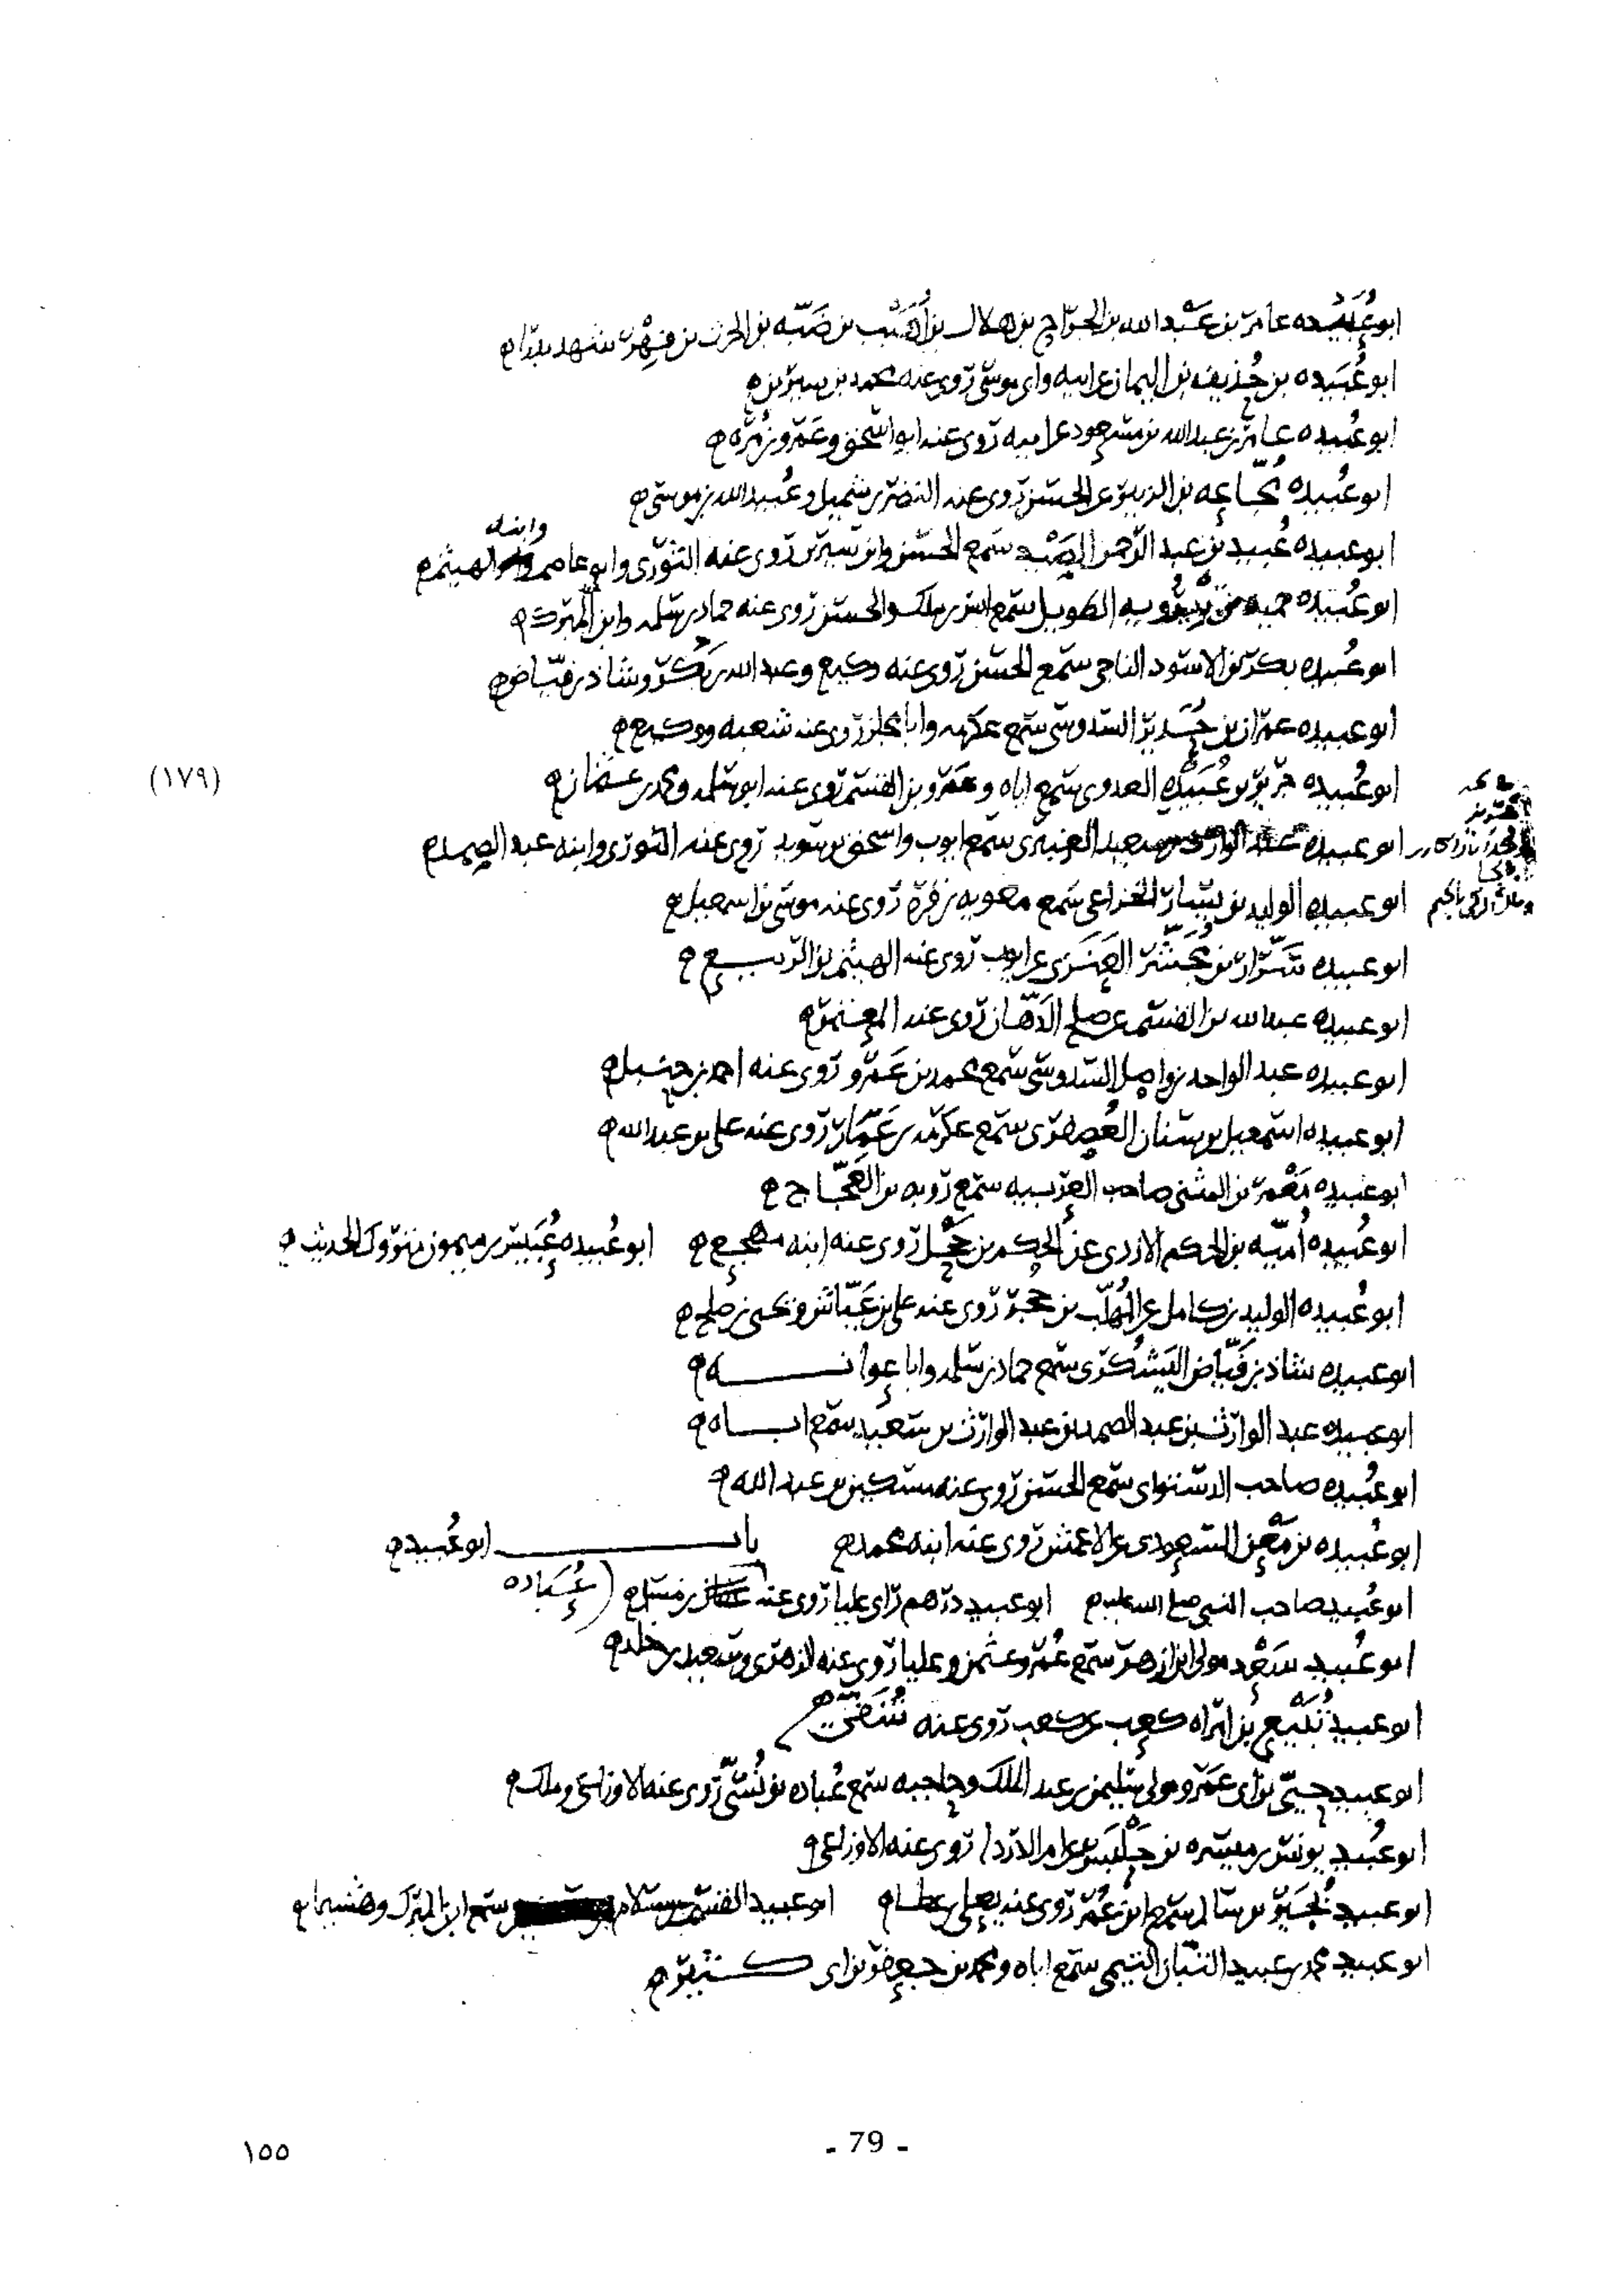 ابو عُبَيْده عامر بن عبد الله بن الجراح بن هلال بن أُهَيْب بن ضَبّه بن الحرث بن فِهْر شهد بدرا
ابو عُبيده بن حُذيفه بن اليمان عن ابيه وابي موسى روى عنه محمد بن سيرين
ابو عُبيده عامر بن عبد الله بن مسعود عن ابيه روى عنه ابو اسحق وعَمرو بن مُرّه
ابو عُبيده مُجّاعه بن الزبير عن الحسن روى عنه النضر بن شميل وعُبيد الله بن موسى
وابنه
ابو عبيده عُبيد بن عبد الرحمن الصَيْد سمع الحسن وابن سيرين روى عنه الثورى وابو عاصم الهيثم
ابو عُبيده حميد بن تِيْرُويه الطويل سمع انس بن ملك والحسن روى عنه حماد بن سلمه وابن المبرك
ابو عُبيده بكر بن الاسود الناجى سمع الحسن روى عنه وكيع وعبد الله بن بكر وشاذ بن فيّاض
ابو عبيده عمران بن حُدَير السدوسى سمع عكرمه وابا مجلز روى عنه شعبه ووكيع
ابو عُبيده جرير بن عُبَيده العدوى سمع اباه وعمرو بن القسم روى عنه ابو سلمه ومحمد بن عثمان
(١٧٩)
ابو عبيده عبد الوارث بن سعيد العنبرى سمع ايوب واسحق بن سويد روى عنه الثورى وابنه عبد الصمد
ابو عبيده الوليد بن يسار الخزاعى سمع معويه بن قره روى عنه موسى بن اسمعيل
ابو عبيده سَوّار بن مُجَشِّر العَنَزى عن ايوب روى عنه الهيثم بن الربيع
ابو عبيده عبد الله بن القسم عن صلح الدهان روى عنه المعتمر
ابو عبيده عبد الواحد بن واصل السدوسى سمع محمد بن عَمرو روى عنه احمد بن حنبل
ابو عبيده اسمعيل بن سنان العُصفرى سمع عكرمه بن عَمّار روى عنه على بن عبد الله
ابو عبيده مَعْمر بن المثنى صاحب العربيه سمع رؤبه بن العَجّاج
ابو عُبيده أُميّه بن الحكم الازدى عن الحكم بن جَحْل روى عنه ابنه مهجع ابو عُبيده عُبَيس بن ميمون متروك الحديث
ابو عُبيده الوليد بن كامل عن المُهلّب بن حُجر روى عنه على بن عَيّاش ويحيى بن صلح
ابو عبيده شاذ بن فَيّاض اليَشكُرى سمع حماد بن سلمه وابا عوانه
ابو عبيده عبد الوارث بن عبد الصمد بن عبد الوارث بن سعيد سمع اباه
ابو عُبيده صاحب الدستوائى سمع الحسن روى عنه مسكين بن عبد الله
ابو عُبيده بن مَعْن المسعودى عن الاعمش روى عنه ابنه محمد باب ابو عُبيد
ابو عُبيد صاحب النبى صلى الله عليه ابو عبيد درهم راى عليا روى عنه بن مسلم عُباده
ابو عُبيد سَعْد مولى ابن ازهر سمع عُمر وعثمن وعليا روى عنه الزهرى وسعيد بن خلد
ابو عبيد تُبَيْع بن امراه كعب عن كعب روى عنه شُفَىّ
ابو عبيد حيىّ بن ابى عَمرو مولى سليمن بن عبد الملك وحاجبه سمع عُباده بن نُسَىّ روى عنه الاوزاعى وملك
ابو عُبيد يونس بن ميسره بن حَلْبَس عن ام الدردا روى عنه الاوزاعى
ابو عبيد نُجَير بن سالم سمع ابن عُمر روى عنه يعلى بن عطا ابو عبيد القسم بن سلام سمع ابن المبرك وهشيما
ابو عبيد محمد بن عبيد التبان التيمى سمع اباه ومحمد بن جعفر بن ابى كثير
- 79 -
١٥٥